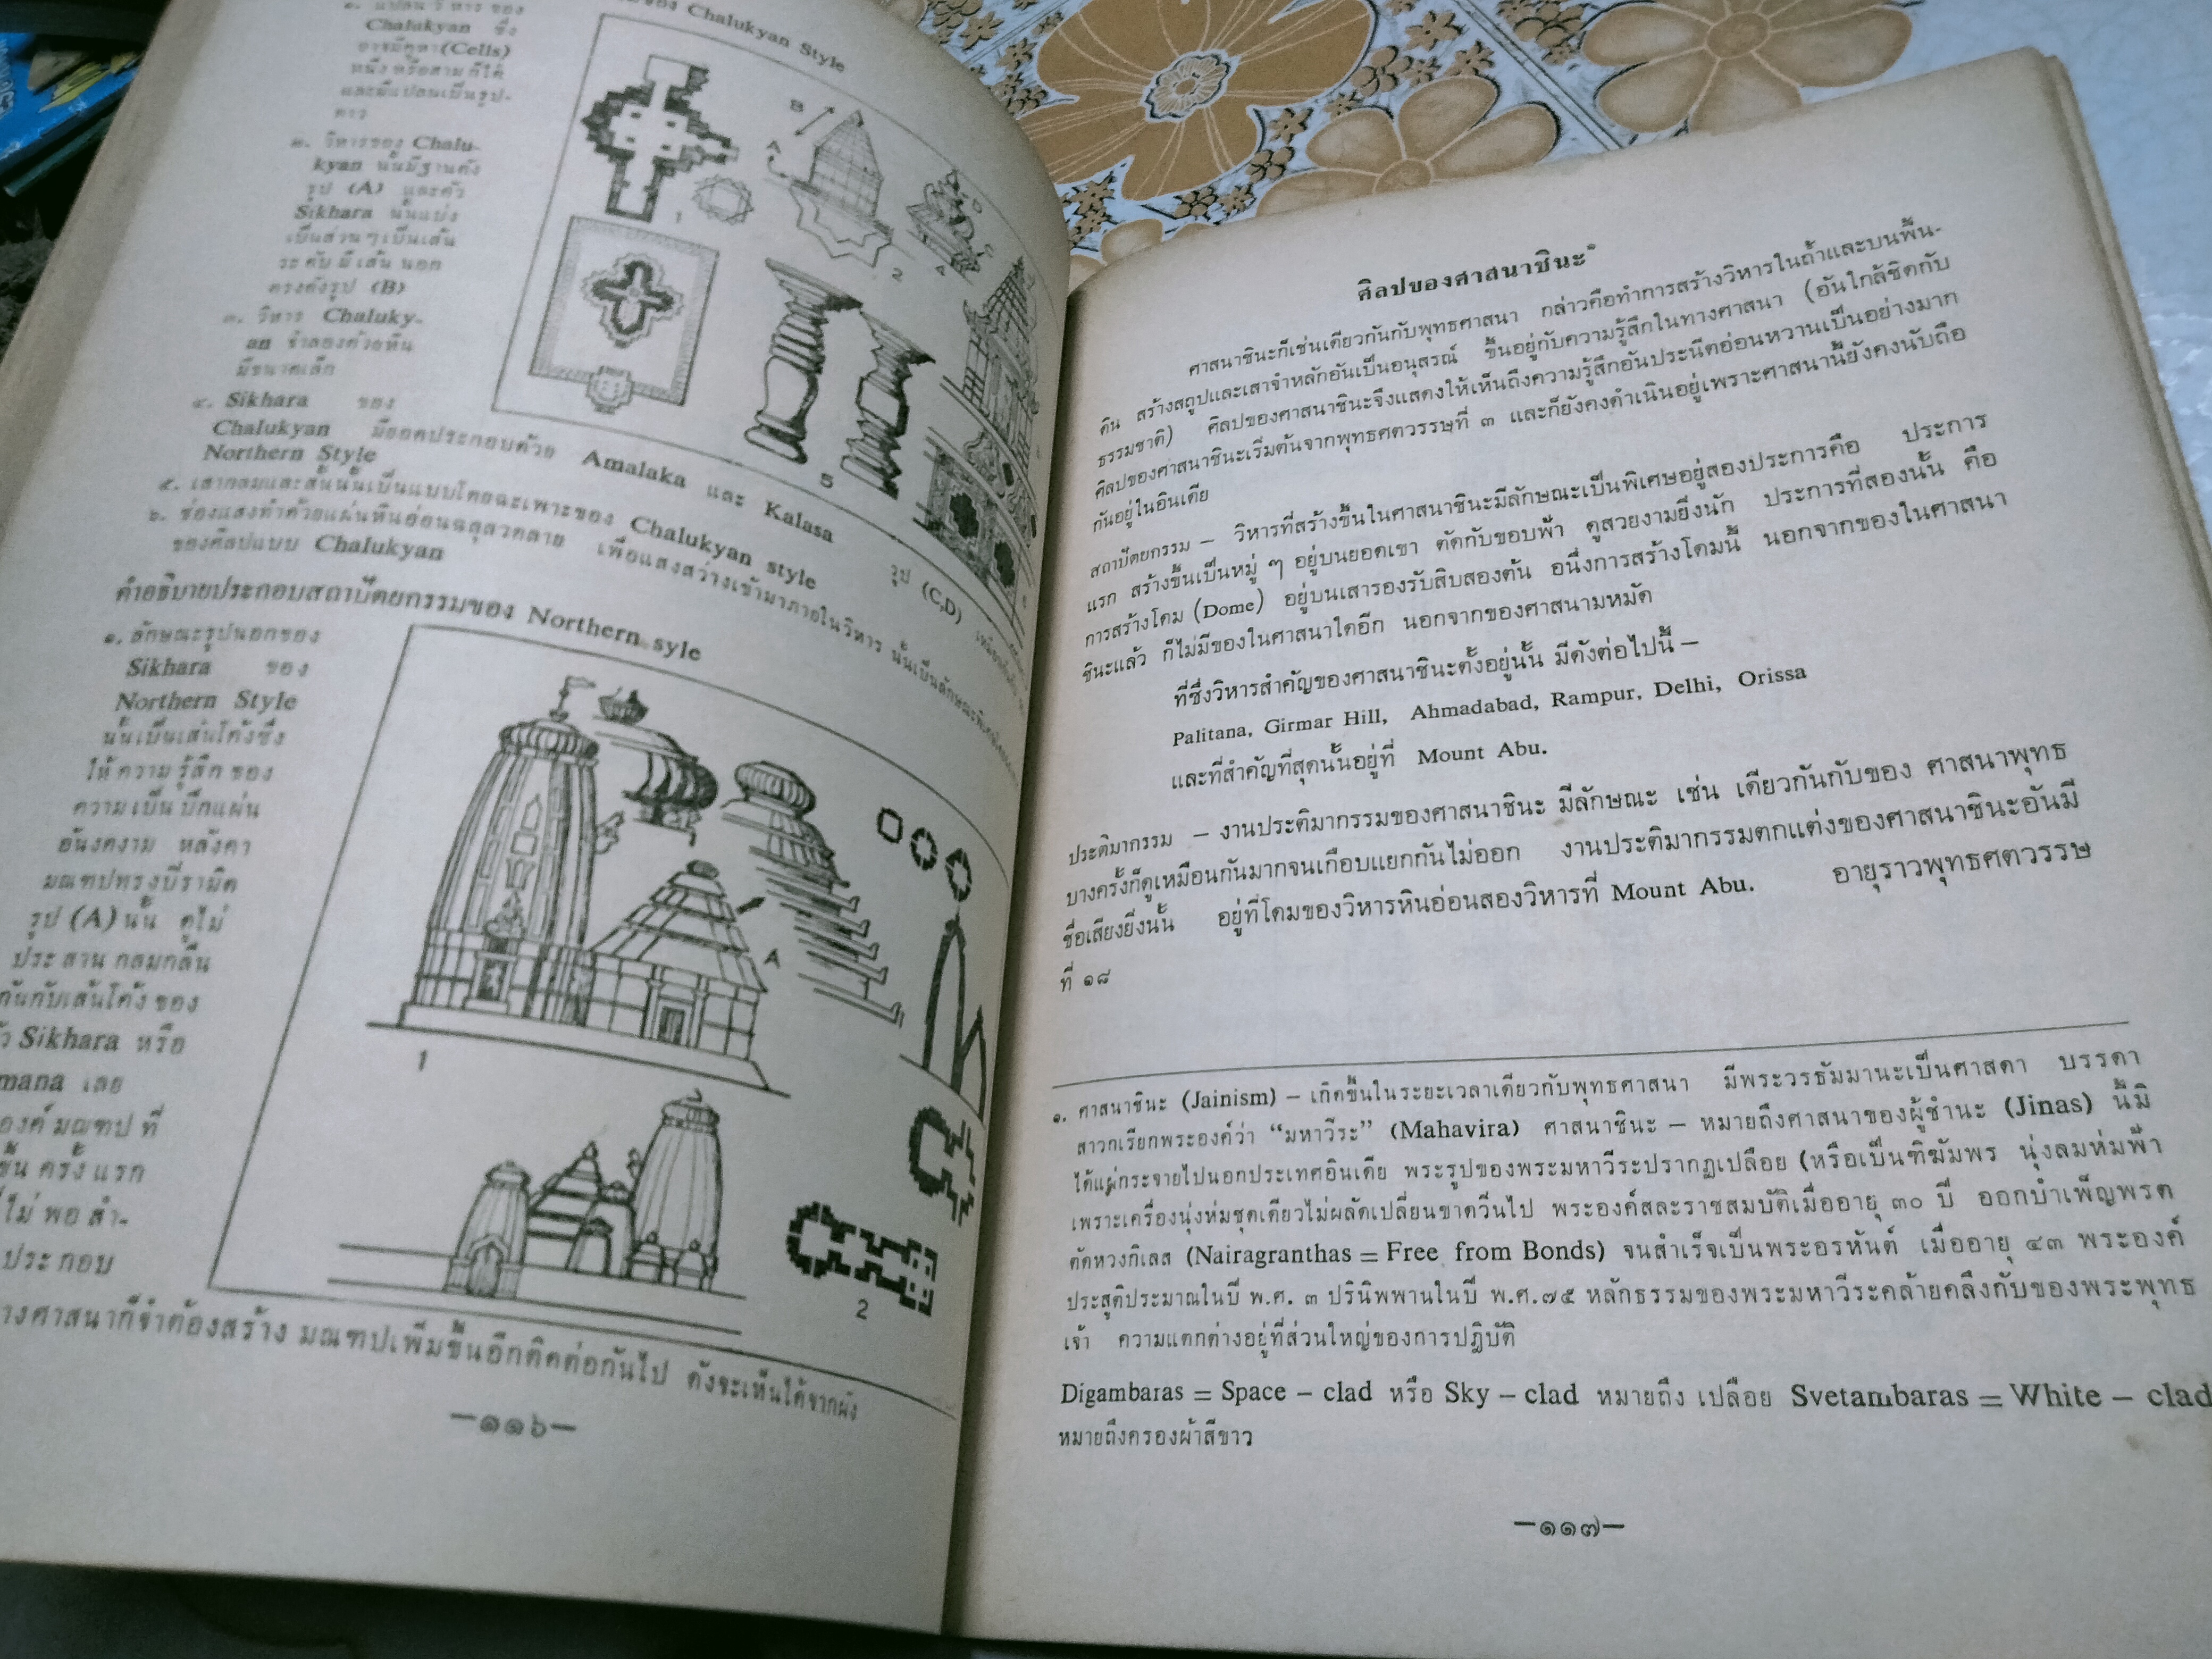 ๑. แปลน วิหาร ของ
Chalukyan ซึ่ง
อาจมีคูหา (Cells)
หนึ่ง หรือสาม ก็ได้
และมีแปลนเป็นรูป-
ดาว
๒. วิหารของ Chalu-
kyan นั้นมีฐานดัง
รูป (A) และตัว
Sikhara นั้นแบ่ง
เป็นส่วน ๆ เป็นเส้น
ระดับ มีเส้น นอก
ตรงดังรูป (B)
๓. วิหาร Chaluky-
an จำลองด้วยหิน
มีขนาดเล็ก
๔. Sikhara ของ
Chalukyan มียอดประกอบด้วย Amalaka และ Kalasa รูป (C,D)
Northern Style
๕. เสากลมและสั้นนั้นเป็นแบบโดยฉะเพาะของ Chalukyan style
๖. ช่องแสงทำด้วยแผ่นหินอ่อนฉลุลวดลาย เพื่อแสงสว่างเข้ามาภายในวิหาร นั้นเป็นลักษณะ
ของศิลปแบบ Chalukyan
ของ Chalukyan Style
B
A
1
2
4
D
C
5
คำอธิบายประกอบสถาปัตยกรรมของ Northern syle
๑. ลักษณะรูปนอกของ
Sikhara ของ
Northern Style
นั้นเป็นเส้นโค้งซึ่ง
ให้ ความ รู้สึก ของ
ความ เป็น ปึกแผ่น
อันงดงาม หลังคา
มณฑปทรงปิรามิด
รูป (A) นั้น ดูไม่
ประ สาน กลมกลืน
กันกับเส้นโค้ง ของ
Sikhara หรือ
mana เลย
องค์ มณฑป ที่
ขึ้น ครั้ง แรก
ไม่ พอ สำ-
ประ กอบ
างศาสนาก็จำต้องสร้าง มณฑปเพิ่มขึ้นอีกติดต่อกันไป ดังจะเห็นได้จากผัง
A
1
2
—๑๑๖—
ศิลปของศาสนาชินะ๑
ศาสนาชินะก็เช่นเดียวกันกับพุทธศาสนา กล่าวคือทำการสร้างวิหารในถ้ำและบนพื้น-
ดิน สร้างสถูปและเสาจำหลักอันเป็นอนุสรณ์ ขึ้นอยู่กับความรู้สึกในทางศาสนา (อันใกล้ชิดกับ
ธรรมชาติ) ศิลปของศาสนาชินะจึงแสดงให้เห็นถึงความรู้สึกอันประนีตอ่อนหวานเป็นอย่างมาก
ศิลปของศาสนาชินะเริ่มต้นจากพุทธศตวรรษที่ ๓ และก็ยังคงดำเนินอยู่เพราะศาสนานี้ยังคงนับถือ
กันอยู่ในอินเดีย
สถาปัตยกรรม – วิหารที่สร้างขึ้นในศาสนาชินะมีลักษณะเป็นพิเศษอยู่สองประการคือ ประการ
แรก สร้างขึ้นเป็นหมู่ ๆ อยู่บนยอดเขา ตัดกับขอบฟ้า ดูสวยงามยิ่งนัก ประการที่สองนั้น คือ
การสร้างโดม (Dome) อยู่บนเสารองรับสิบสองต้น อนึ่งการสร้างโดมนี้ นอกจากของในศาสนา
ชินะแล้ว ก็ไม่มีของในศาสนาใดอีก นอกจากของศาสนามหมัด
ที่ซึ่งวิหารสำคัญของศาสนาชินะตั้งอยู่นั้น มีดังต่อไปนี้ –
Palitana, Girmar Hill, Ahmadabad, Rampur, Delhi, Orissa
และที่สำคัญที่สุดนั้นอยู่ที่ Mount Abu.
ประติมากรรม – งานประติมากรรมของศาสนาชินะ มีลักษณะ เช่น เดียวกันกับของ ศาสนาพุทธ
บางครั้งก็ดูเหมือนกันมากจนเกือบแยกกันไม่ออก งานประติมากรรมตกแต่งของศาสนาชินะอันมี
ชื่อเสียงยิ่งนั้น อยู่ที่โดมของวิหารหินอ่อนสองวิหารที่ Mount Abu. อายุราวพุทธศตวรรษ
ที่ ๑๘
๑. ศาสนาชินะ (Jainism) – เกิดขึ้นในระยะเวลาเดียวกับพุทธศาสนา มีพระวรธัมมานะเป็นศาสดา บรรดา
สาวกเรียกพระองค์ว่า “มหาวีระ” (Mahavira) ศาสนาชินะ – หมายถึงศาสนาของผู้ชำนะ (Jinas) นี้มิ
ได้แผ่กระจายไปนอกประเทศอินเดีย พระรูปของพระมหาวีระปรากฏเปลือย (หรือเป็นทิฆัมพร นุ่งลมห่มฟ้า
เพราะเครื่องนุ่งห่มชุดเดียวไม่ผลัดเปลี่ยนขาดวิ่นไป พระองค์สละราชสมบัติเมื่ออายุ ๓๐ ปี ออกบำเพ็ญพรต
ตัดหวงกิเลส (Nairagranthas = Free from Bonds) จนสำเร็จเป็นพระอรหันต์ เมื่ออายุ ๔๓ พระองค์
ประสูติประมาณในปี พ.ศ. ๓ ปรินิพพานในปี พ.ศ.๗๕ หลักธรรมของพระมหาวีระคล้ายคลึงกับของพระพุทธ
เจ้า ความแตกต่างอยู่ที่ส่วนใหญ่ของการปฏิบัติ
Digambaras = Space – clad หรือ Sky – clad หมายถึง เปลือย Svetambaras = White – clad
หมายถึงครองผ้าสีขาว
—๑๑๗—